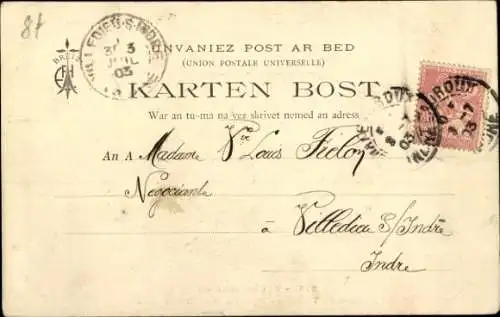 84
VILLEDIEU-S-INDRE
3
JUIL
03
BREIZ
UNVANIEZ POST AR BED
(UNION POSTALE UNIVERSELLE)
KARTEN BOST
War an tu-ma na vez skrivet nemed an adress
An A Madame Vve Louis Fiélon
Négociante
à Villedieu S/Indre
Indre